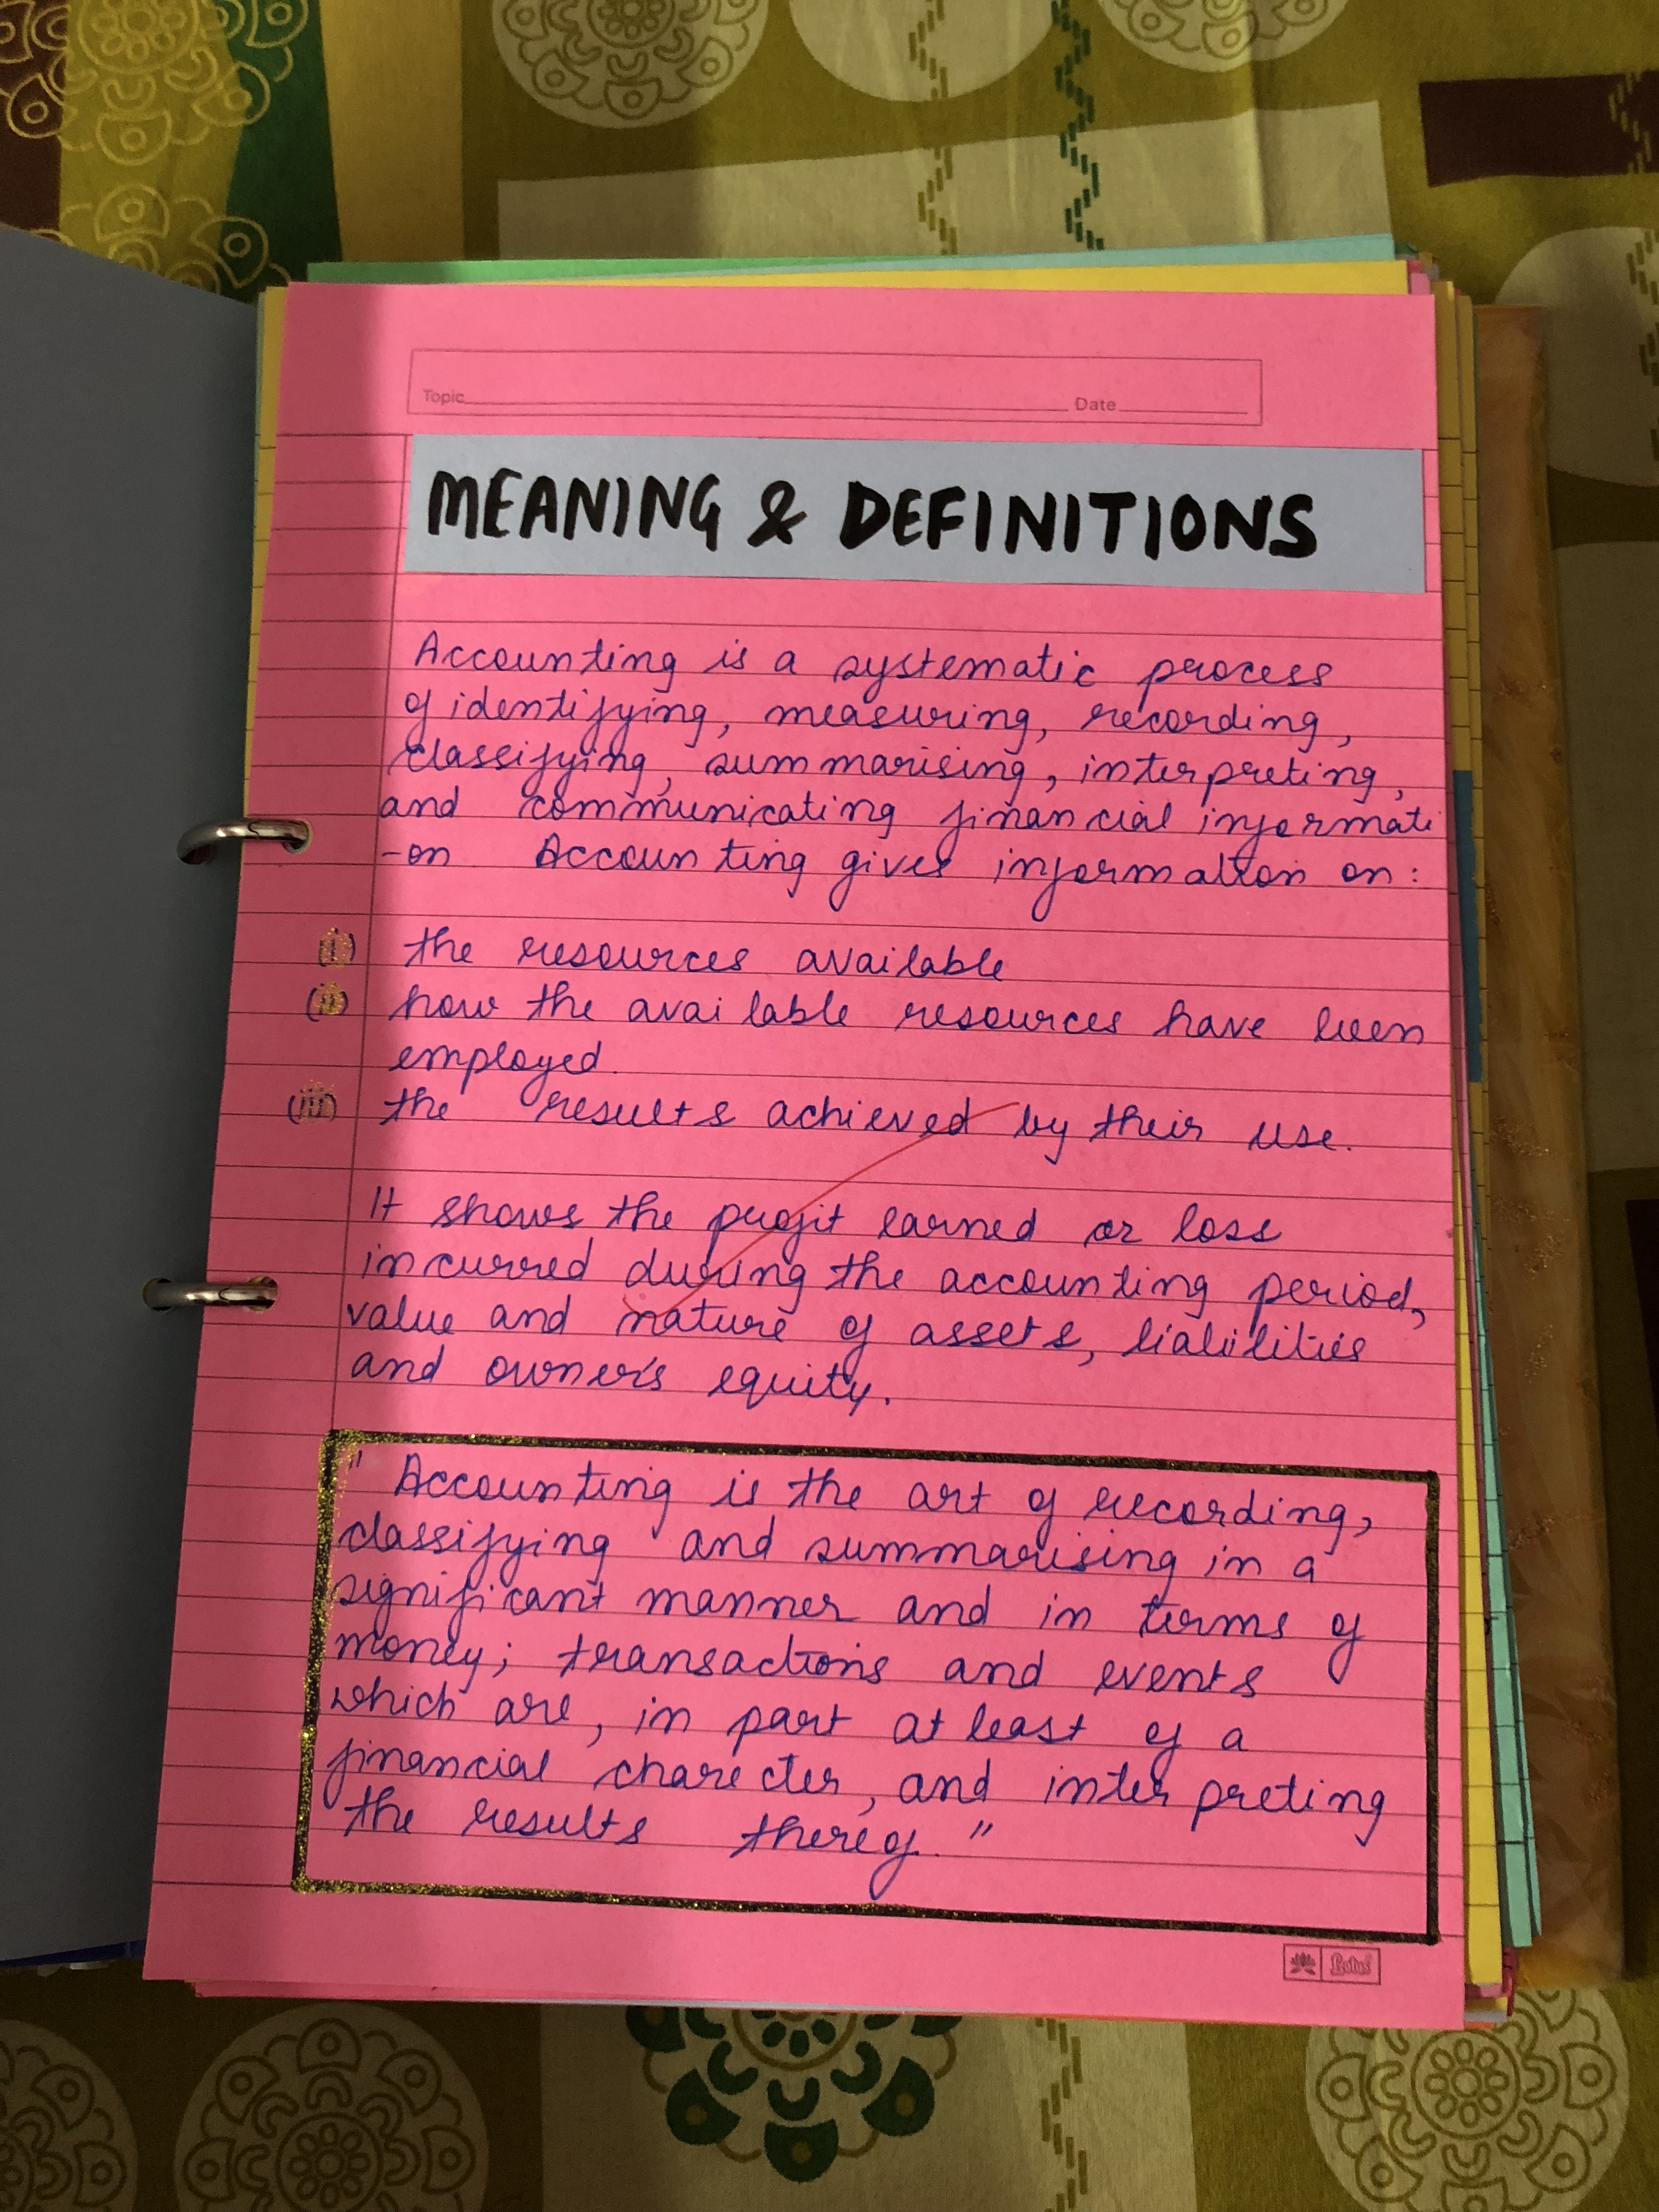 Topic Date
MEANING & DEFINITIONS
Accounting is a systematic process
of identifying, measuring, recording,
classifying, summarising, interpreting,
and communicating financial informati
-on Accounting gives information on:
(i) the resources available
(ii) how the available resources have been
employed.
(iii) the results achieved by their use.
It shows the profit earned or loss
incurred during the accounting period,
value and nature of assets, liabilities
and owner's equity.
" Accounting is the art of recording,
classifying and summarising in a
significant manner and in terms of
money; transactions and events
which are, in part at least of a
financial charecter, and interpreting
the results thereof. "
Lotus